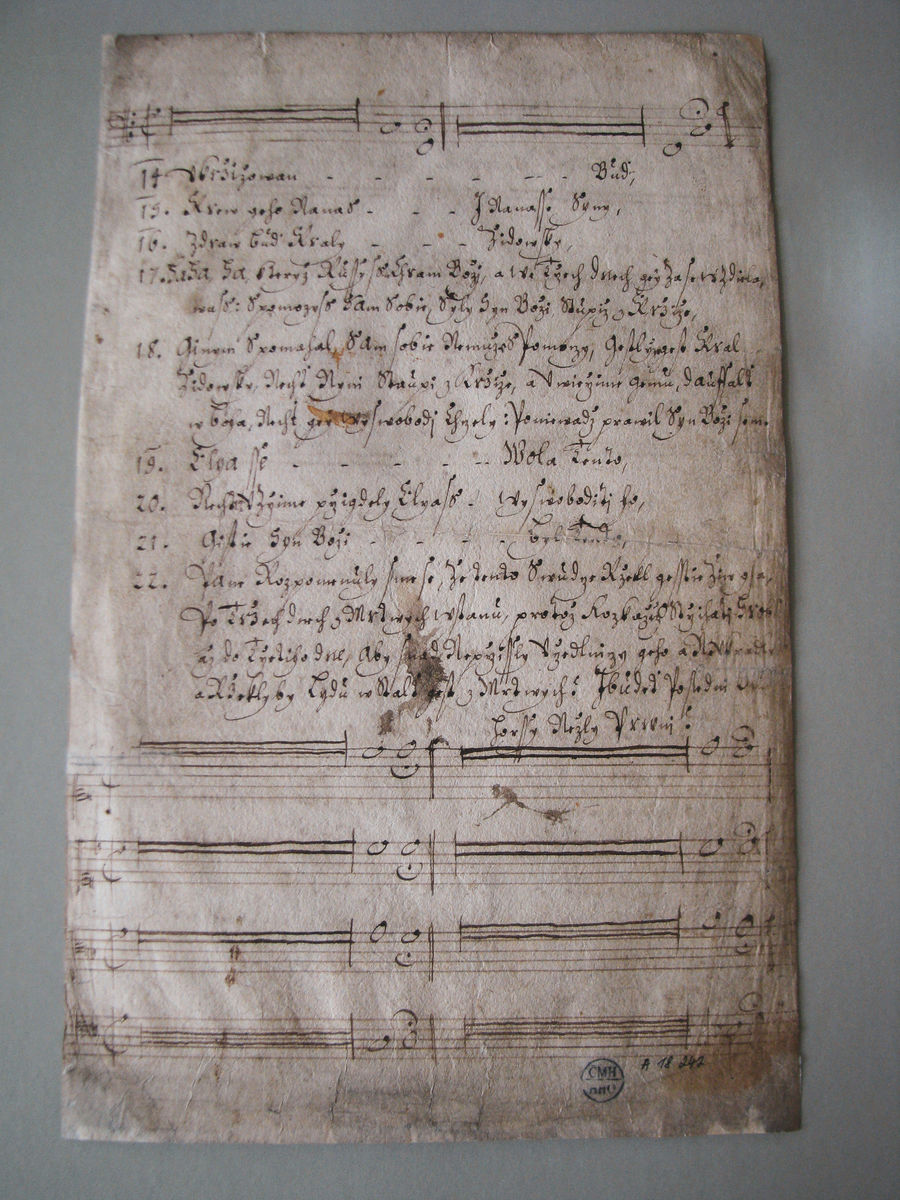 14 Vkrzizowan - - - - - - - Bud,
15. Krew geho Nanas - - - J Nanasse Syny,
16. Zdraw bud Kraly - - - Zidowsky,
17. Haha ha, kteryz Russyss Chram Bozi, a we Trzech dnech gey zase wzdiela,
wass: Spomozyss sam sobie, Syly Syn Bozi Stupiz z Krzize,
18. Ginym Spomahal, Sam sobie Nemuzes Pomozy, Gestly gest Kral
Zidowsky, Necht Nyni Staupi z Krzize, a Vwierzime gemu, dauffalt
w Boha, Necht gey wyswobodi Chzely: Poniewadz prawil Syn Bozi sem.
19. Elya sse - - - - - - Wola Tento,
20. Necht Vzrzime przigdely Elyass - wyswoboditi ho,
21. Gistie Syn Bozi - - - - byl Tento,
22. Pane Rozpomenuly smese, Ze tento Swudcze Rzekl gesstie Ziw gsa,
Po Trzech dnech z Mrtwych wstanu, protoz Rozkaziz Strzihati Hrobu
az do Trzetiho dne, Aby snad Neprzissly Vczedlnizy geho a Nevkradly
a Rzekly by Lydu wstalt gest z Mrtwych: Jbudet Posledni
horssy Nezly Prwni:
CMH
A 18 242